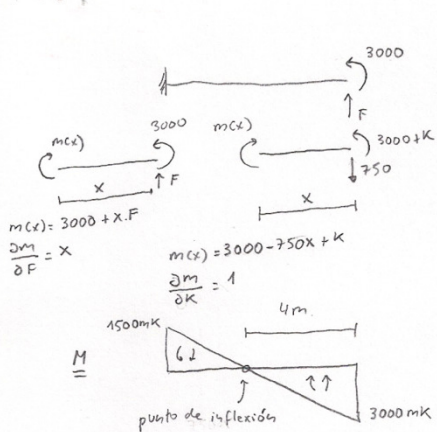 3000
F
m(x)
3000
F
x
m(x) = 3000 + x.F
∂m/∂F = x
m(x)
3000+K
750
x
m(x) = 3000 - 750x + K
∂m/∂K = 1
4m
1500mK
M
punto de inflexión
3000mK